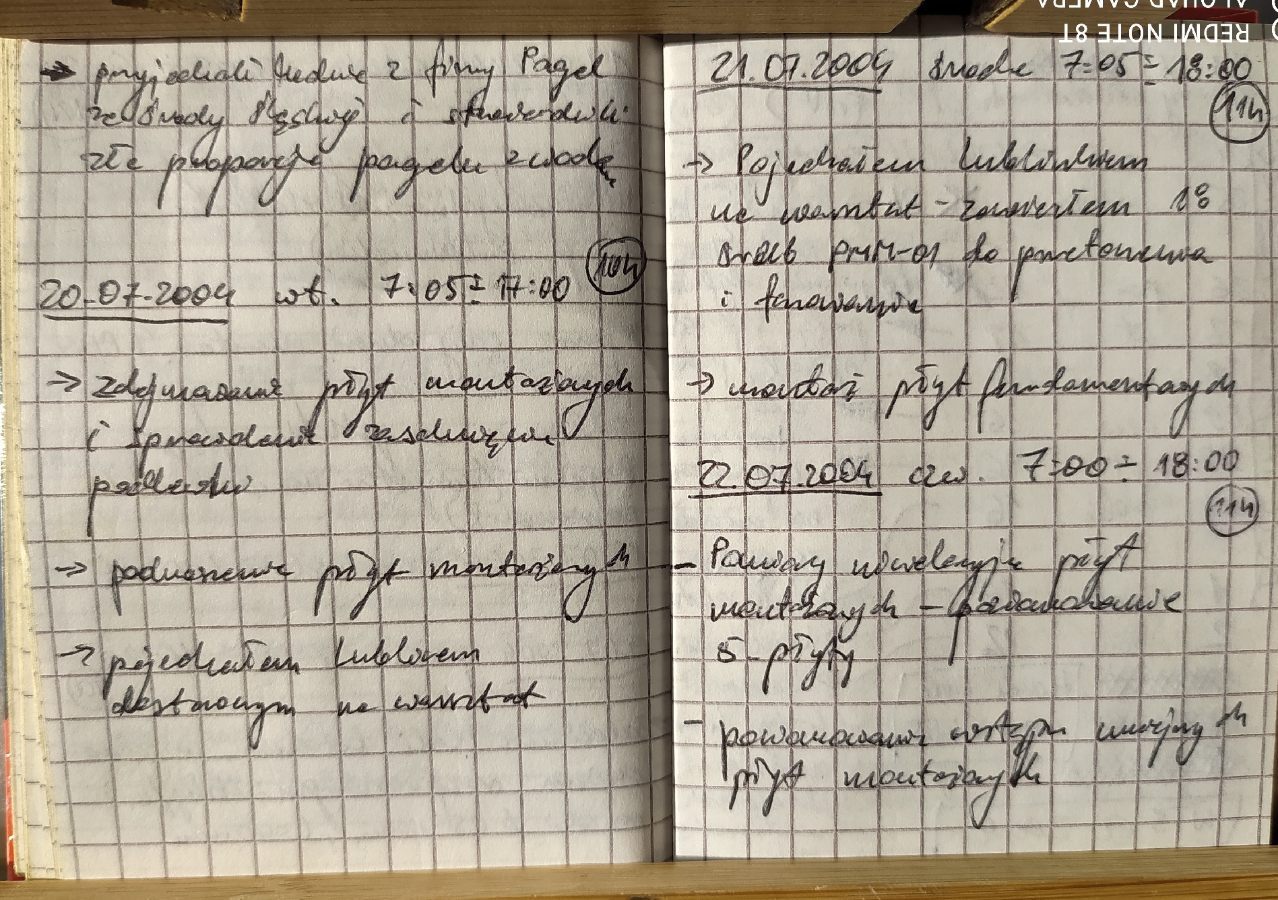 → przyjechali ludzie z firmy Pagel
ze Środy Śląskiej i stwierdzili
złe proporcje pagelu z wodą
10h
20.07.2004 wt. 7:05÷17:00
→ zdejmowanie płyt montażowych
i sprawdzenie
podlewów
→ podnoszenie płyt montażowych
→ pojechałem Lublinem
dostawczym na warsztat
21.07.2004 środa 7:05÷18:00
11h
→ Pojechałem Lublinkiem
na warsztat - zawiozłem 18
śrub PMM-01 do przetoczenia
i
→ montaż płyt fundamentowych
22.07.2004 czw. 7:00÷18:00
11h
- Pomiary niwelacyjne płyt
montażowych -
5 płyty
- wstępne
płyt montażowych
REDMI NOTE 8T
AI QUAD CAMERA